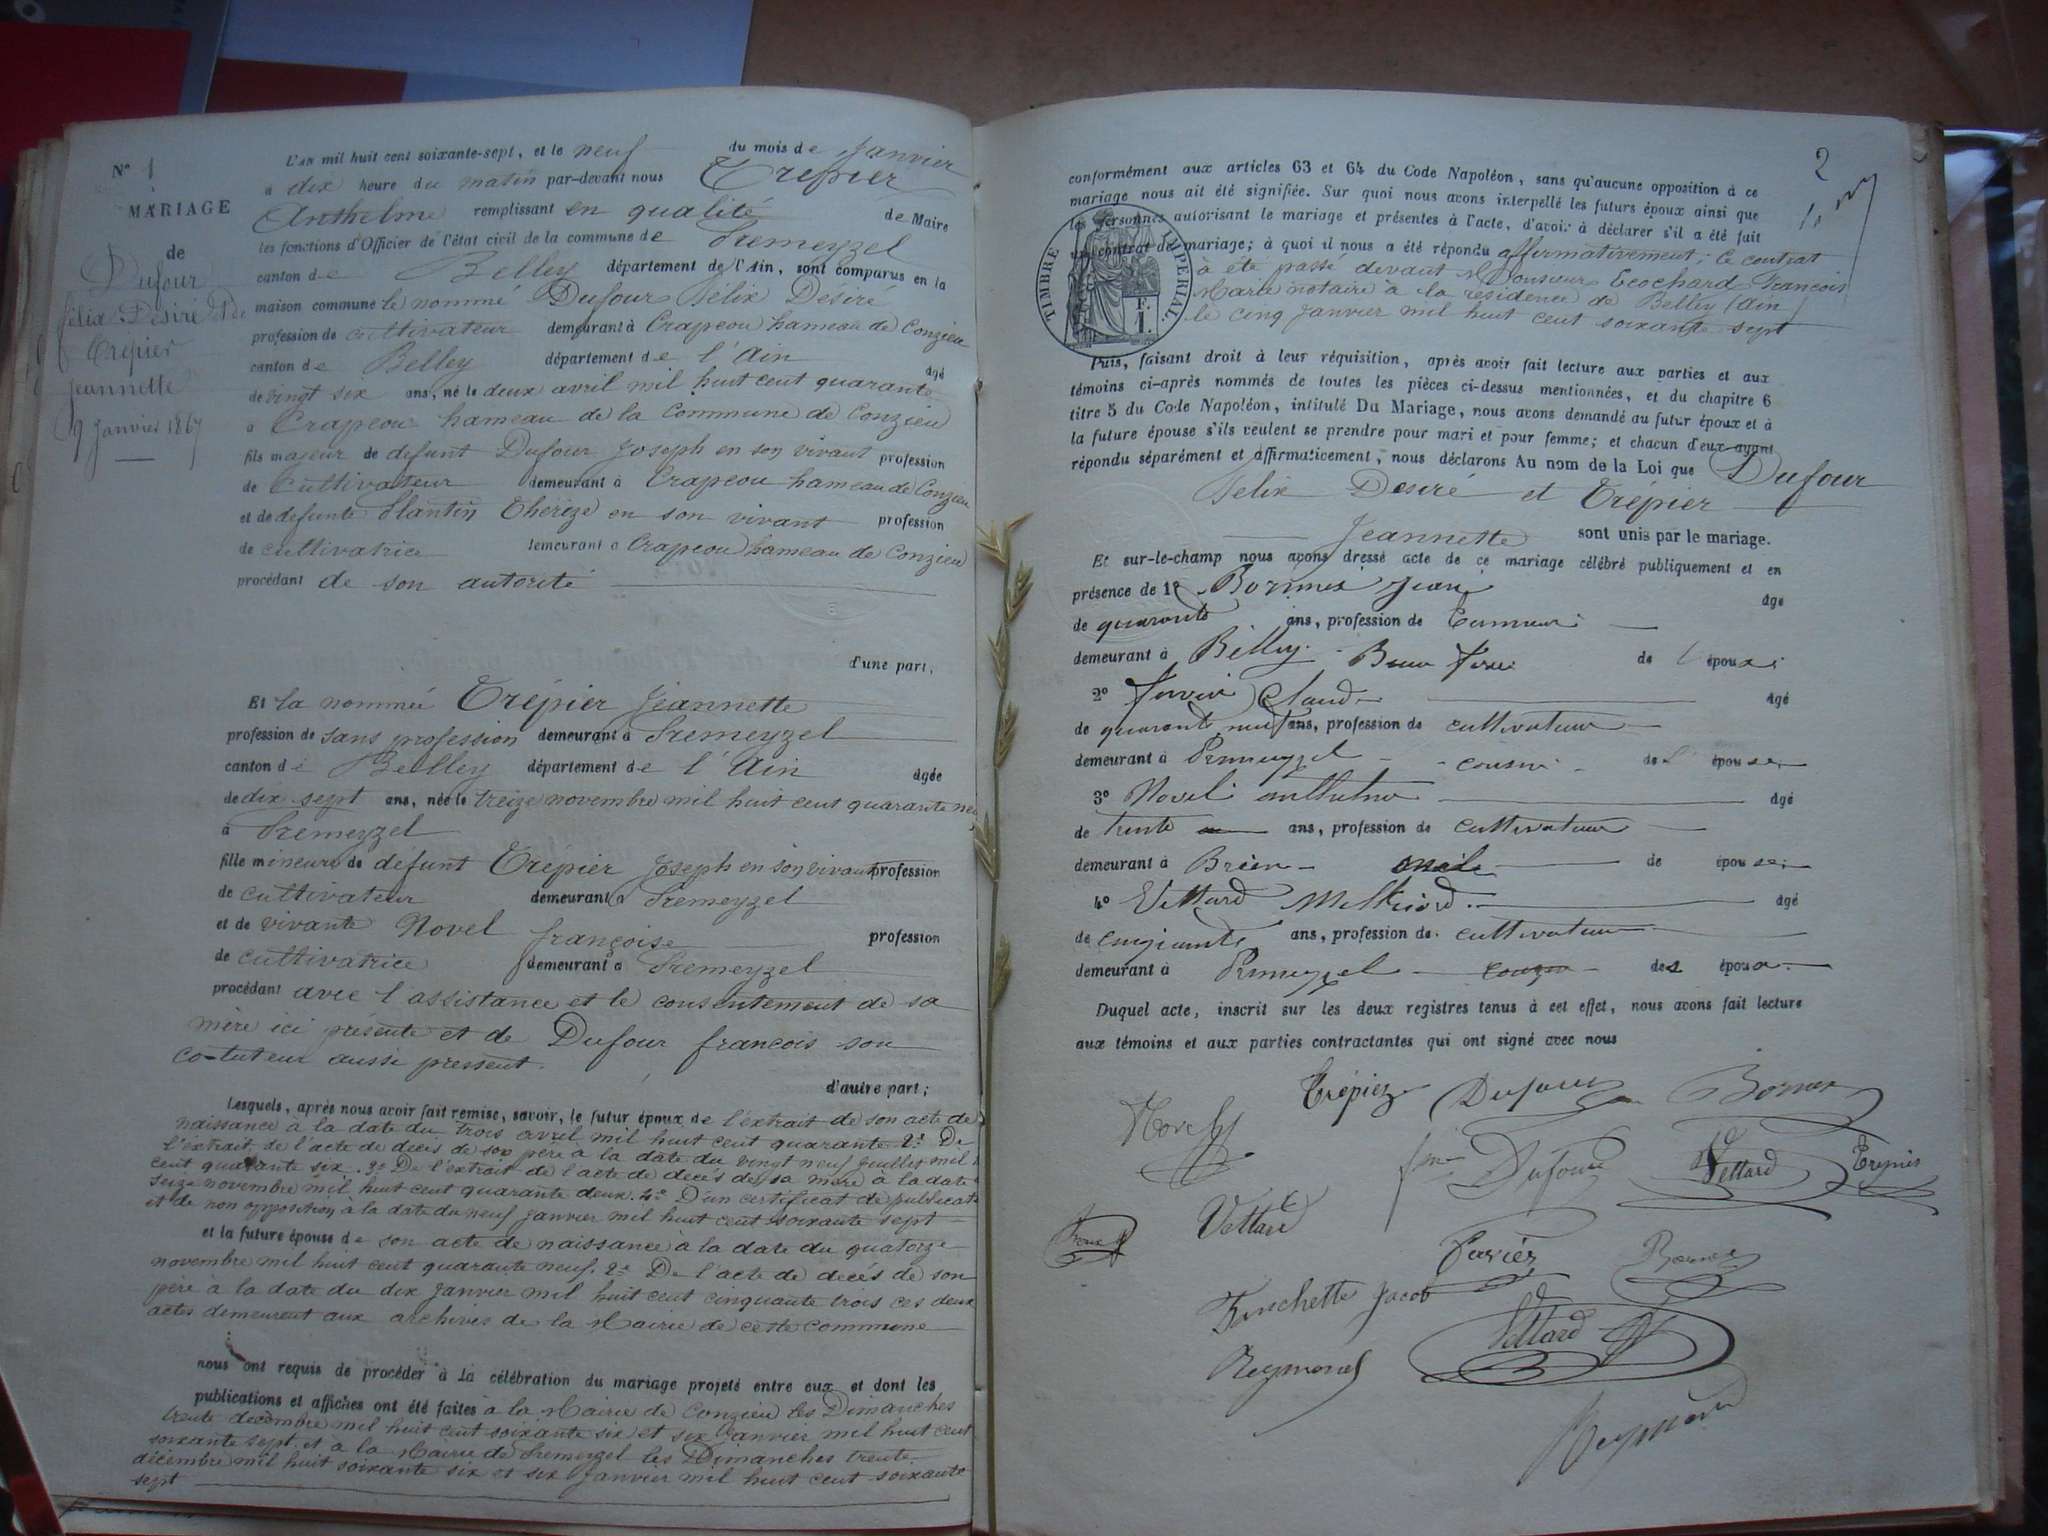 N° 1
MARIAGE
de
Dufour
félix Désiré
Trépier
Jeannette
9 Janvier 1867
L'an mil huit cent soixante-sept, et le neuf du mois de Janvier
à dix heure du matin par-devant nous Trepier
Anthelme remplissant en qualité de Maire
les fonctions d'Officier de l'état civil de la commune de Premeyzel
canton de Belley département de l'Ain, sont comparus en la
maison commune le nommé Dufour Félix Désiré
profession de cultivateur demeurant à Crapeou hameau de Conzieu
canton de Belley département de l'Ain âgé
de vingt six ans, né le deux avril mil huit cent quarante
à Crapeou hameau de la Commune de Conzieu
fils majeur de defunt Dufour Joseph en son vivant profession
de Cultivateur demeurant à Crapeou hameau de Conzieu
et de defunte Plantin Thérèze en son vivant profession
de cultivatrice demeurant à Crapeou hameau de Conzieu
procédant de son autorité
d'une part,
Et la nommée Trépier Jeannette
profession de sans profession demeurant à Premeyzel
canton de Belley département de l'Ain âgée
de dix sept ans, née le treize novembre mil huit cent quarante neuf
à Premeyzel
fille mineure de défunt Trépier Joseph en son vivant profession
de cultivateur demeurant à Premeyzel
et de vivante Novel françoise profession
de cultivatrice demeurant à Premeyzel
procédant avec l'assistance et le consentement de sa
mère ici présente et de Dufour francois son
co-tuteur aussi present.
d'autre part;
Lesquels, après nous avoir fait remise, savoir, le futur époux de l'extrait de son acte de
naissance à la date du trois avril mil huit cent quarante 2° De
l'extrait de l'acte de décès de son père à la date du vingt neuf Juillet mil
cent quarante six. 3° De l'extrait de l'acte de decés de sa mère à la date
seize novembre mil huit cent quarante deux. 4° D'un certificat de publicat
et de non opposition à la date du neuf Janvier mil huit cent soixante sept
et la future épouse de son acte de naissance à la date du quatorze
novembre mil huit cent quarante neuf. 2° De l'acte de decés de son
père à la date du dix Janvier mil huit cent cinquante trois ces deux
actes demeurent aux archives de la Mairie de cette commune
nous ont requis de procéder à la célébration du mariage projeté entre eux et dont les
publications et affiches ont été faites à la Mairie de Conzieu les Dimanches
trente decembre mil huit cent soixante six et six Janvier mil huit cent
soixante sept et à la Mairie de Premeyzel les Dimanches trente
décembre mil huit soixante six et six Janvier mil huit cent soixante
sept
2
conformément aux articles 63 et 64 du Code Napoléon, sans qu'aucune opposition à ce
mariage nous ait été signifiée. Sur quoi nous avons interpellé les futurs époux ainsi que
les personnes autorisant le mariage et présentes à l'acte, d'avoir à déclarer s'il a été fait
un contrat de mariage; à quoi il nous a été répondu affirmativement; ce contrat
à été passé devant Monsieur Ecochard François
Marie notaire à la résidence de Belley (Ain)
le cinq Janvier mil huit cent soixante sept
TIMBRE IMPERIAL.
F.
1.
Puis, faisant droit à leur réquisition, après avoir fait lecture aux parties et aux
témoins ci-après nommés de toutes les pièces ci-dessus mentionnées, et du chapitre 6
titre 5 du Code Napoléon, intitulé Du Mariage, nous avons demandé au futur époux et à
la future épouse s'ils veulent se prendre pour mari et pour femme; et chacun d'eux ayant
répondu séparément et affirmativement, nous déclarons Au nom de la Loi que Dufour
Felix Desiré et Trépier
Jeannette sont unis par le mariage.
Et sur-le-champ nous avons dressé acte de ce mariage célébré publiquement et en
présence de 1° Bornex Jean âgé
de quarante ans, profession de
demeurant à Belley Beau frere de l époux
2° Claude âgé
de quarante neuf ans, profession de cultivateur
demeurant à Premeyzel cousin de l' épouse
3° Novel anthelme âgé
de trente ans, profession de cultivateur
demeurant à Bréen oncle de épouse
4° Vettard Melkiord âgé
de cinquante ans, profession de cultivateur
demeurant à Premeyzel des époux
Duquel acte, inscrit sur les deux registres tenus à cet effet, nous avons fait lecture
aux témoins et aux parties contractantes qui ont signé avec nous
Trépiez Dufour Bornex
Novel
Dufour Vettard Trepier
Vettard
Bornex
Jacob
Vettard
Reymond
Reymond